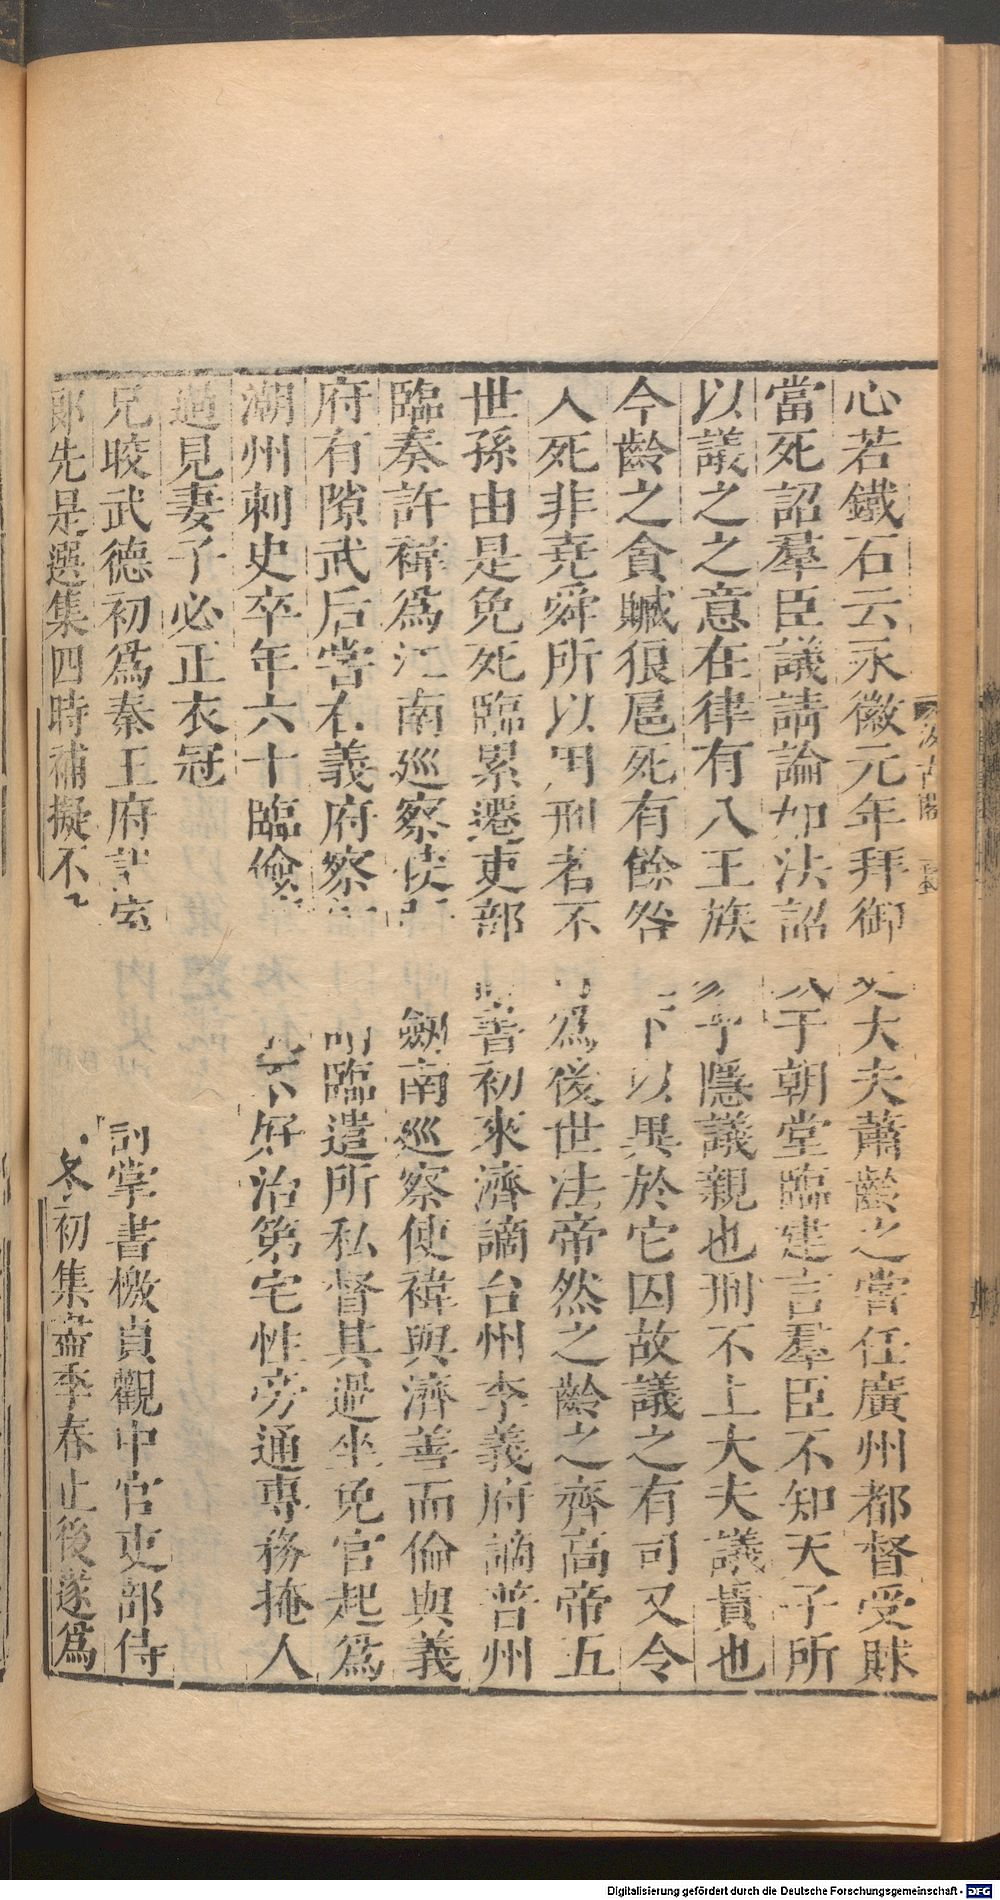 心若鐵石云永徽元年拜御史大夫蕭齡之嘗任廣州都督受賕
當死詔羣臣議請論如法詔于朝堂臨建言羣臣不知天子所
以議之之意在律有八王族隱議親也刑不上大夫議貴也
今齡之貪贓狠扈死有餘咎下以異於它囚故議之有司又令
入死非堯舜所以用刑者不為後世法帝然之齡之齊高帝五
世孫由是免死臨累遷吏部書初來濟謫台州李義府謫普州
臨奏許禕爲江南巡察使劒南巡察使禕與濟善而倫與義
府有隙武后嘗右義府察臨遣所私督其過坐免官起爲
潮州刺史卒年六十臨儉不好治第宅性旁通專務掩人
過見妻子必正衣冠
兄皎武德初爲秦王府記室掌書檄貞觀中官吏部侍
郎先是選集四時補擬不冬初集盡季春止後遂爲
汲古閣
Digitalisierung gefördert durch die Deutsche Forschungsgemeinschaft - DFG